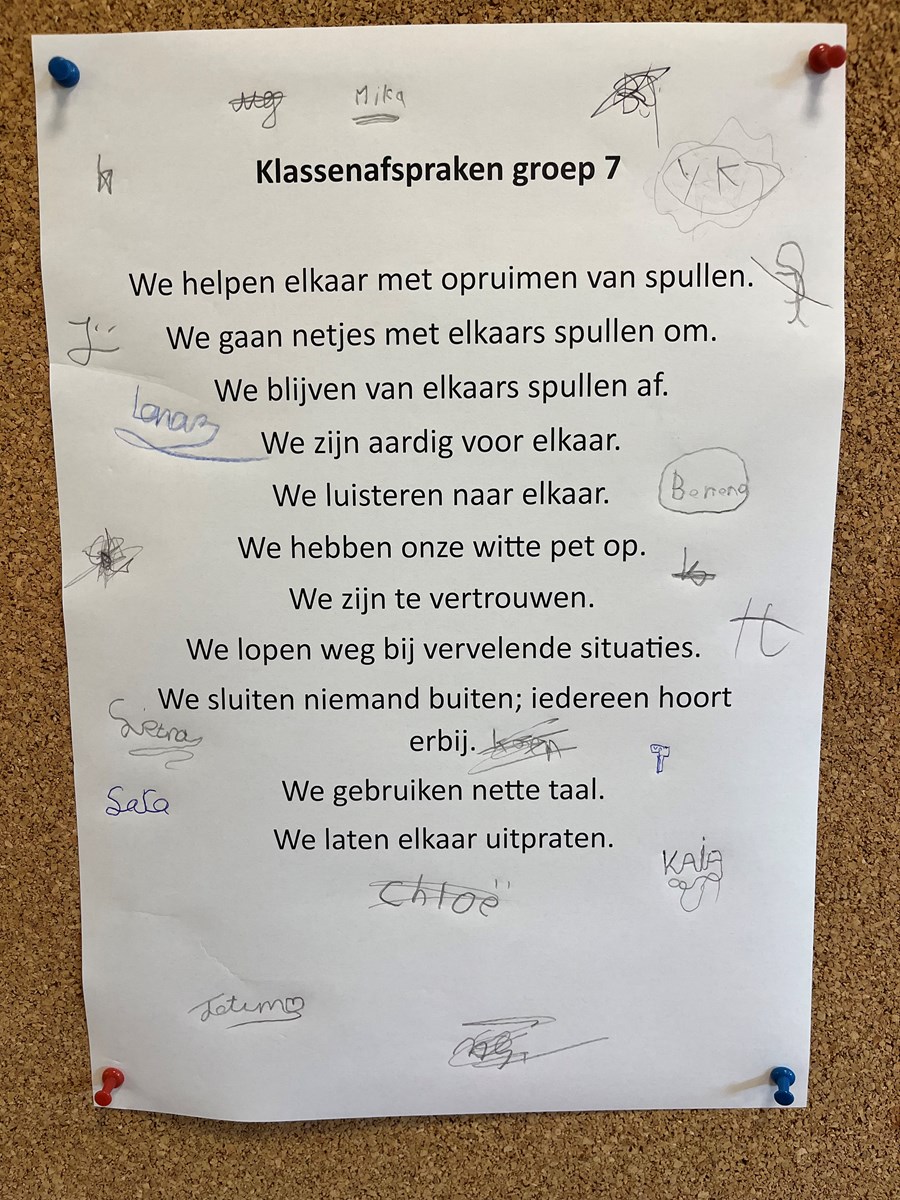 Mika
Klassenafspraken groep 7
YK
We helpen elkaar met opruimen van spullen.
We gaan netjes met elkaars spullen om.
We blijven van elkaars spullen af.
We zijn aardig voor elkaar.
We luisteren naar elkaar.
We hebben onze witte pet op.
We zijn te vertrouwen.
We lopen weg bij vervelende situaties.
We sluiten niemand buiten; iedereen hoort
erbij. Koen
T
We gebruiken nette taal.
Sara
We laten elkaar uitpraten.
KAJA
Chloë